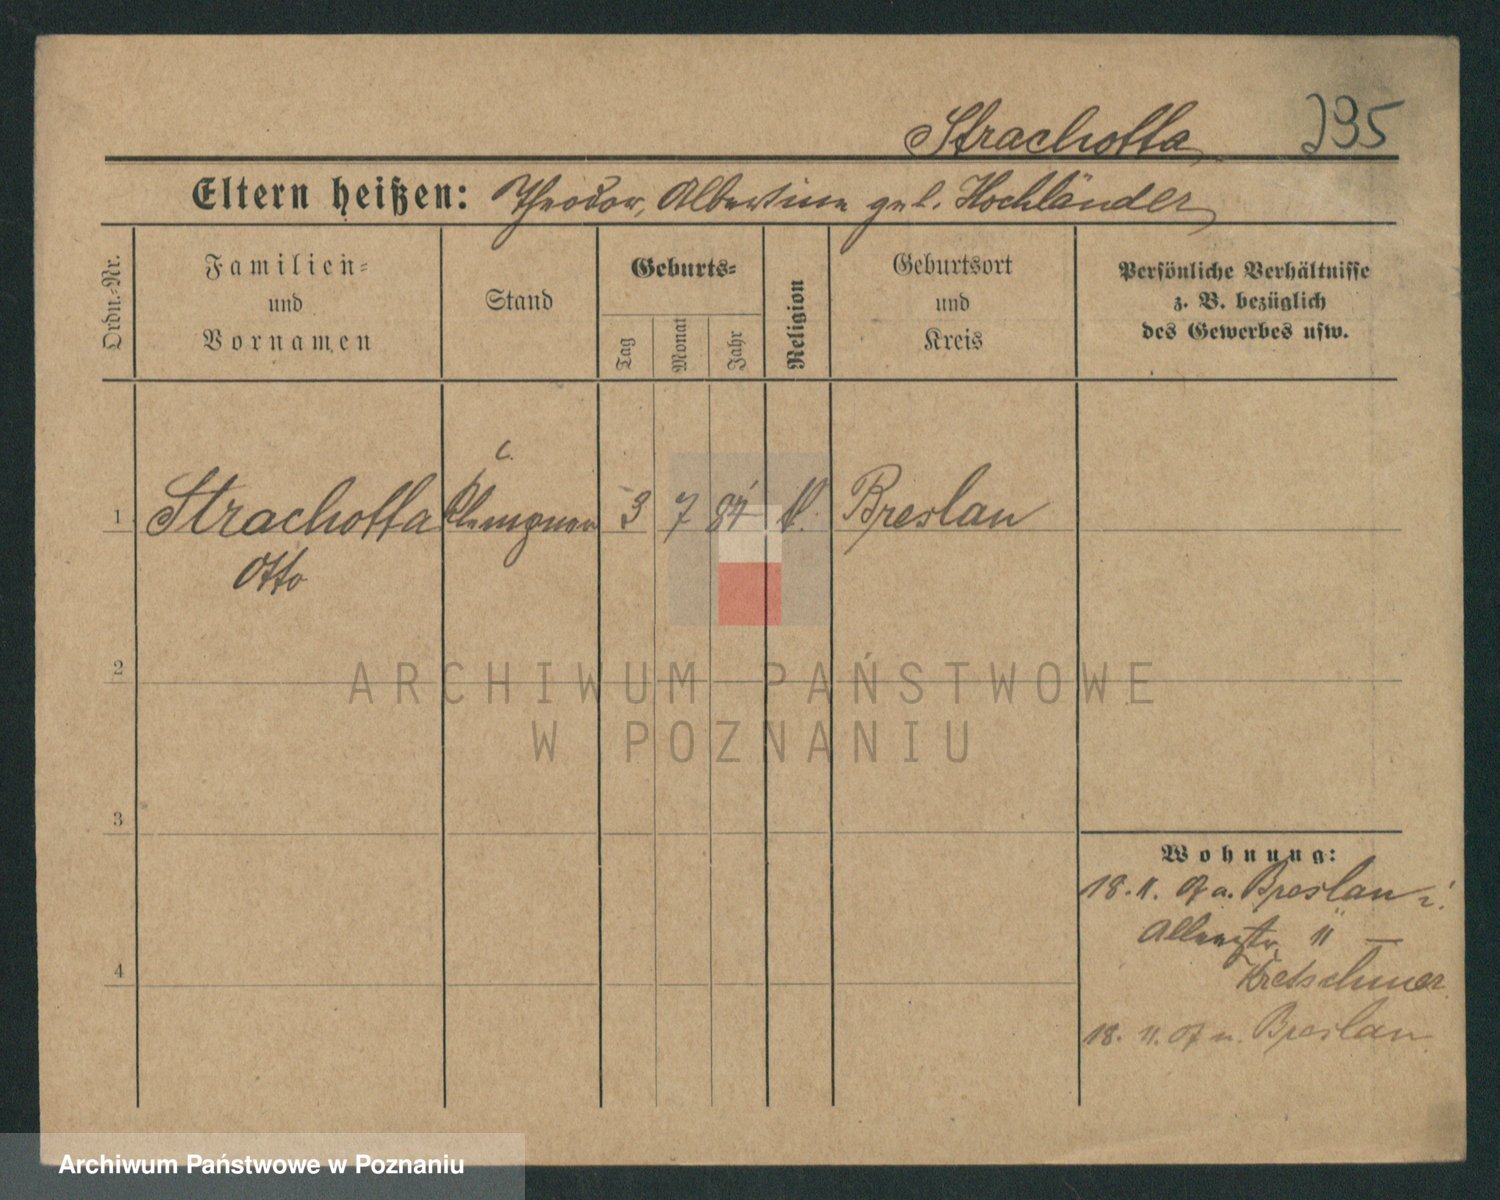 Strachotta
235
Eltern heißen: Theodor, Albertine geb. Hochländer
Ordn.-Nr.
Familien- und Vornamen
Stand
Geburts-
Tag
Monat
Jahr
Religion
Geburtsort und Kreis
Persönliche Verhältnisse
z. B. bezüglich
des Gewerbes usw.
1 Strachotta Klempner 3 7 84 k. Breslau
Otto
2
ARCHIWUM PAŃSTWOWE
W POZNANIU
3
Wohnung:
18. 11. 07 a. Breslau
11 —
Kretschmer
4
18. 11. 07 n. Breslau
Archiwum Państwowe w Poznaniu